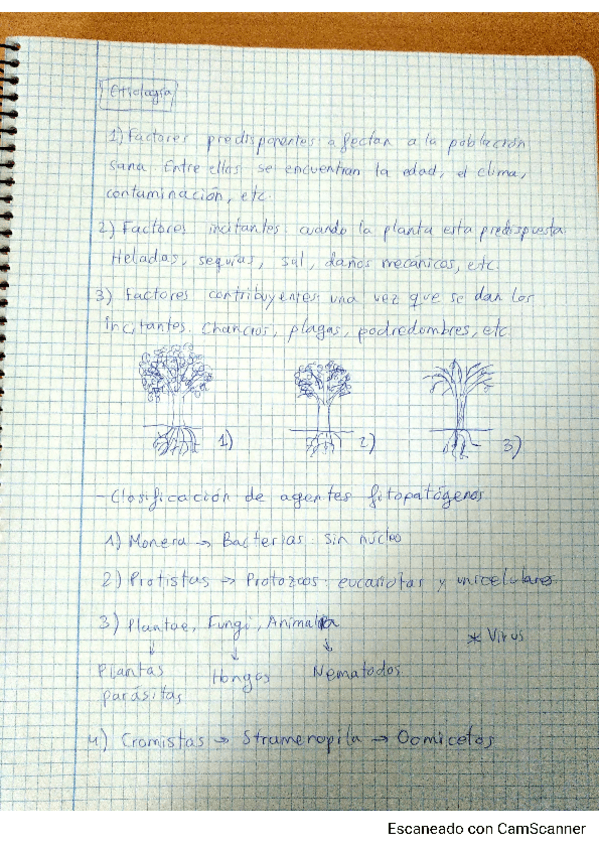 Etiología
1) Factores predisponentes: afectan a la población
sana. Entre ellos se encuentran la edad, el clima,
contaminación, etc.
2) Factores incitantes: cuando la planta esta predispuesta
Heladas, sequías, sal, daños mecánicos, etc.
3) Factores contribuyentes: una vez que se dan los
incitantes. Chancros, plagas, podredumbres, etc.
1) 2) 3)
- Clasificación de agentes fitopatógenos
1) Monera → Bacterias: sin núcleo
2) Protistas → Protozoos: eucariotas y unicelulares
3) Plantae, Fungi, Animalia
* Virus
Plantas Hongos Nematodos
parásitas
4) Cromistas → Stramenopila → Oomicetos
Escaneado con CamScanner